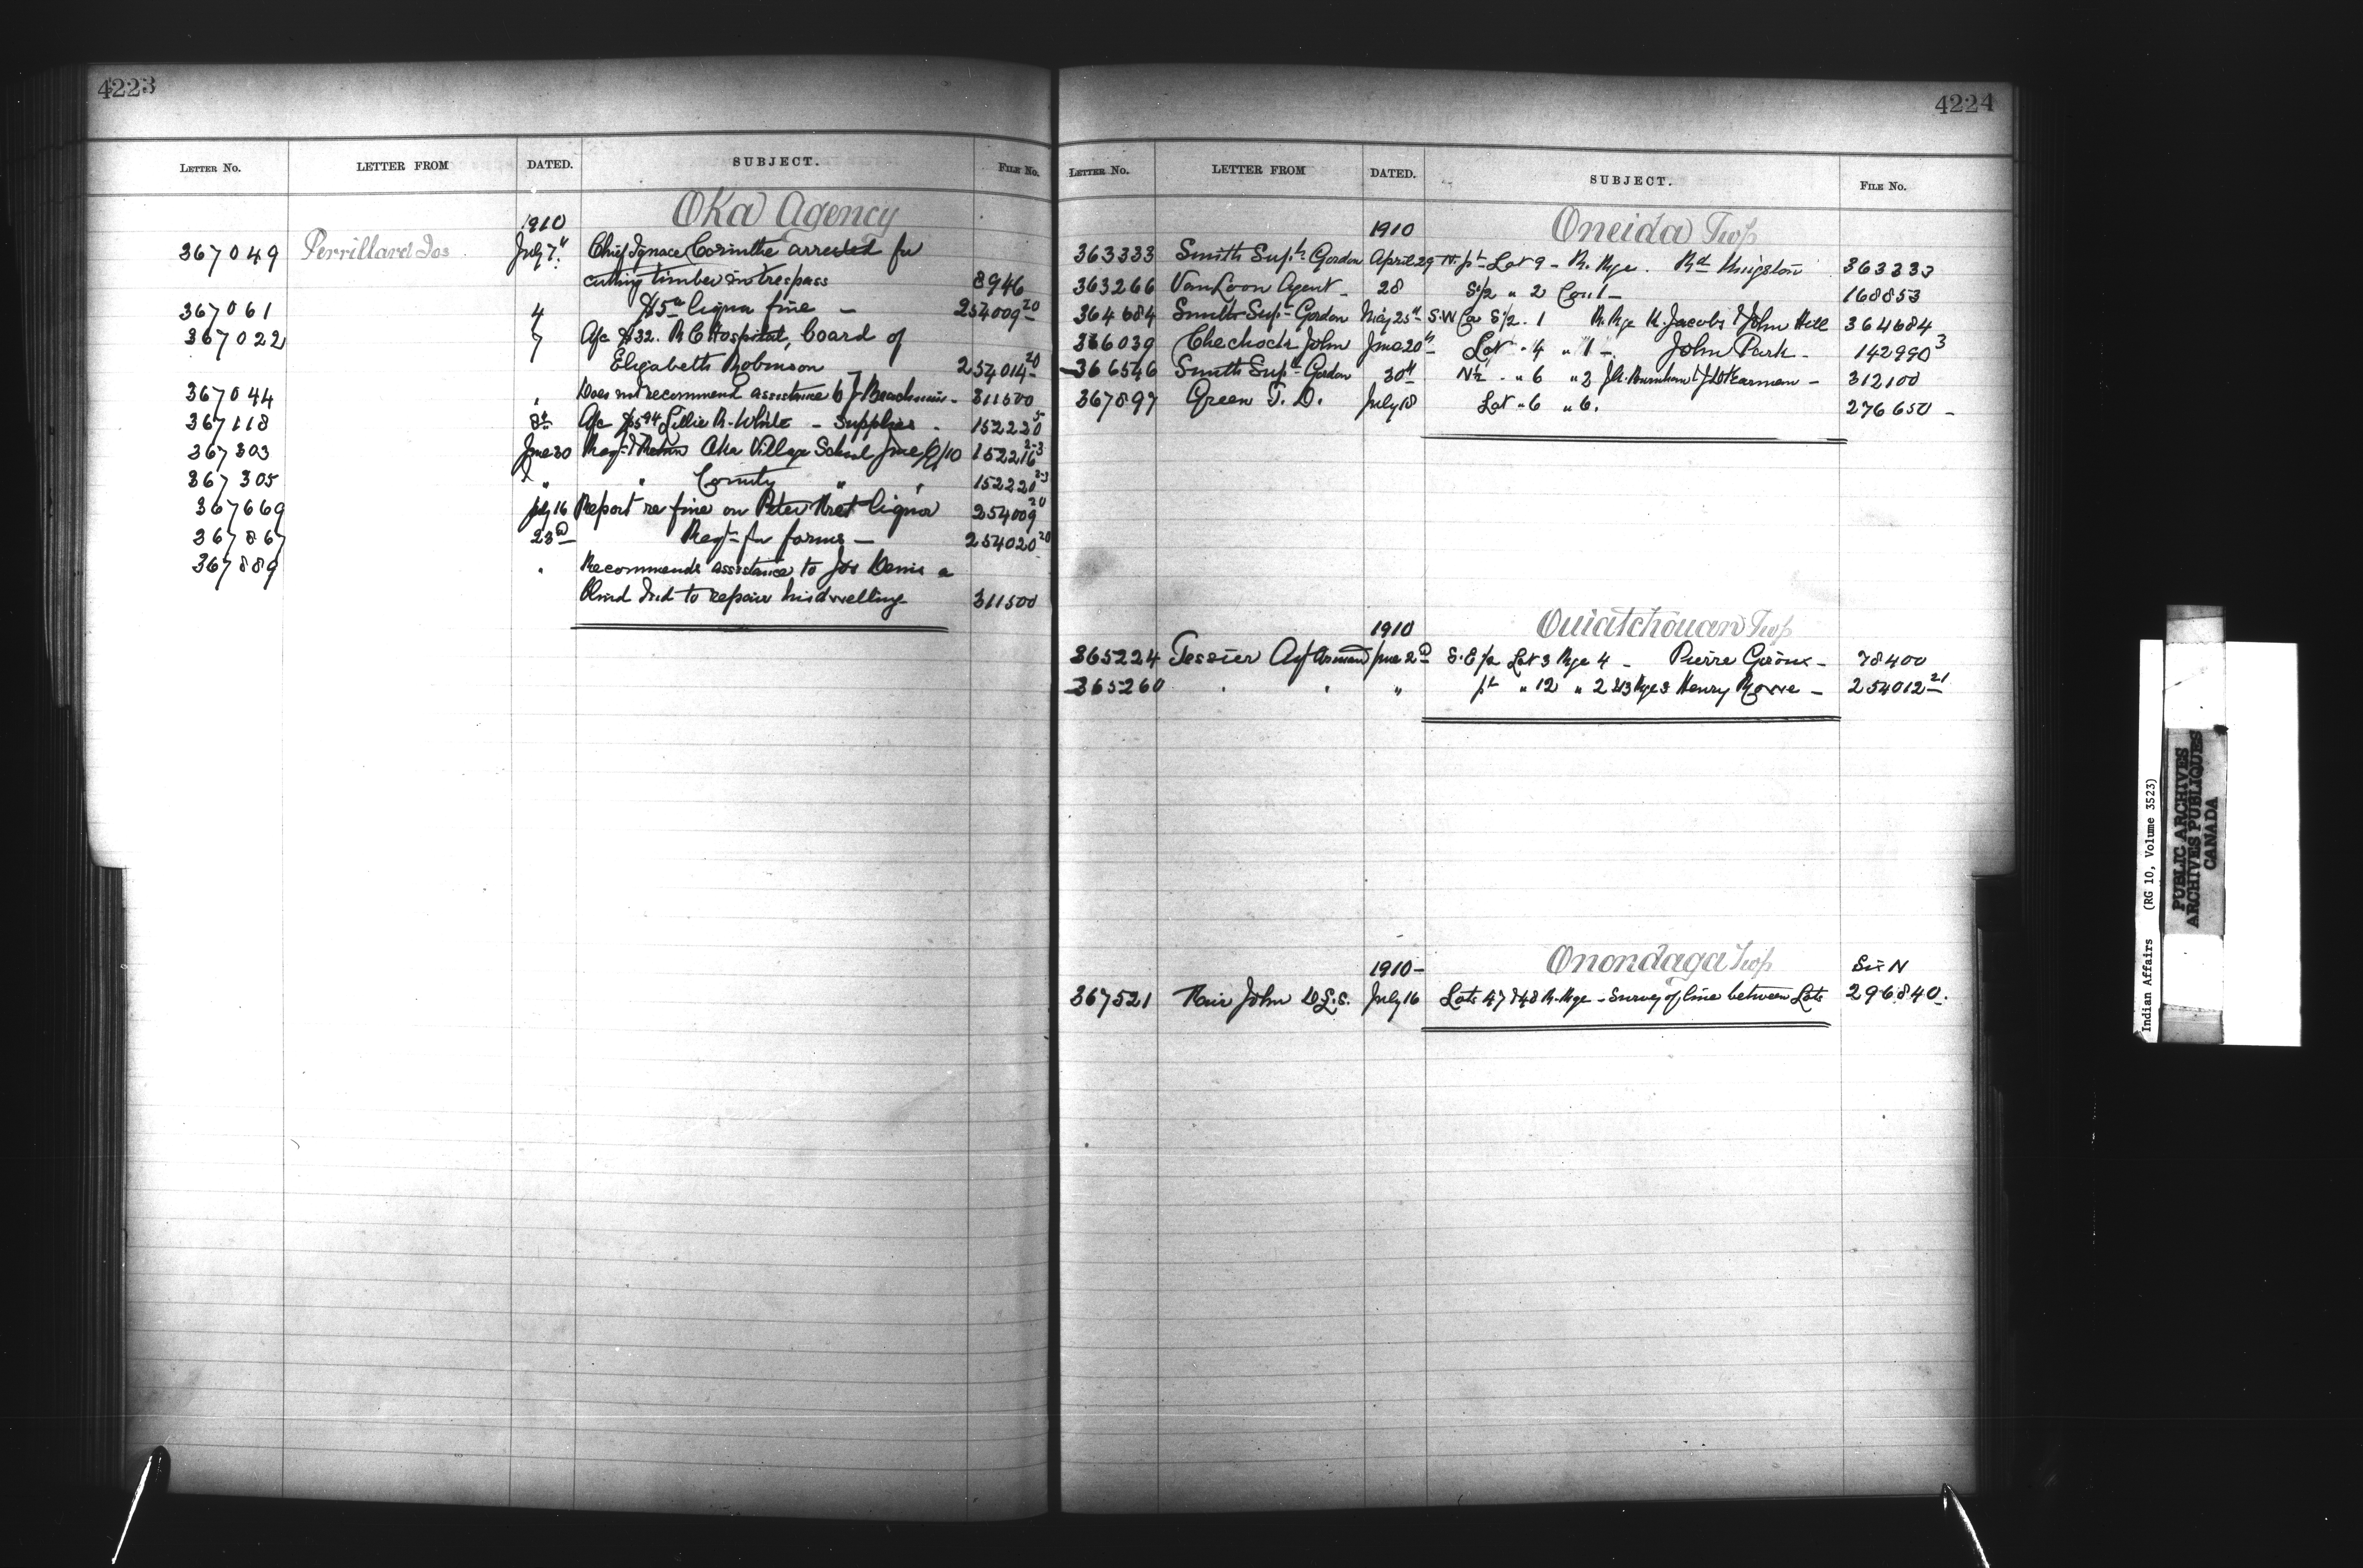 4223
LETTER NO. LETTER FROM DATED. SUBJECT. FILE NO.
Oka Agency
1910
367049 Perrillard Jos July 7" Chief Ignace Corinthe arrested for
cutting timber in trespass 8946
367061 4 $5 liquor fine — 254009-20
367022 7 A/c $32. R C Hospital, board of
Elizabeth Robinson 254014-20
367044 " Does not recommend assistance to J 311500
367118 8th A/c Lillie R. White - Supplies - 152220 5
367303 June 30 Oka Village School June Q/10 152216 2-3
367305 " " County " " 152220 2-3
367669 July 16 Report re fine on Peter liquor 254009 20
367867 23d Reqt for forms — 254020 20
367889 " Recommends assistance to Jos Denis a
blind Ind to repair his dwelling 311500
4224
LETTER NO. LETTER FROM DATED. SUBJECT. FILE NO.
1910 Oneida Twp
363333 Smith Supt. Gordon April 29 N. pt Lot 9 - R. Rge. Rd Kingston 363333
363266 VanLoon Agent - 28 S½ " 2 Con 1 - 168853
364684 Smith Supt Gordon May 25th S.W Cor S½ . 1 R. Rge K. Jacobs & John Hill 364684
366039 Chechock John June 20th Lot " 4 " 1 - John Park - 142990 3
366546 Smith Supt Gordon 30th N½ " 6 " 2 312100
367897 Green T. D. July 18 Lot " 6 " 6. 276650 -
1910 Ouiatchouan Twp
365224 Tessier Agt Armand June 2d S.E ½ Lot 3 Rge 4 - Pierre Giroux - 78400
365260 " " " pt " 12 " 2 Rge 3 Henry Rowe - 254012-21
1910- Onondaga Twp Six N
367521 Fair John D.L.S. July 16 Lots 47 & 48 R. Rge - Survey of line between Lots 296840.
Indian Affairs (RG 10, Volume 3523)
PUBLIC ARCHIVES
ARCHIVES PUBLIQUES
CANADA